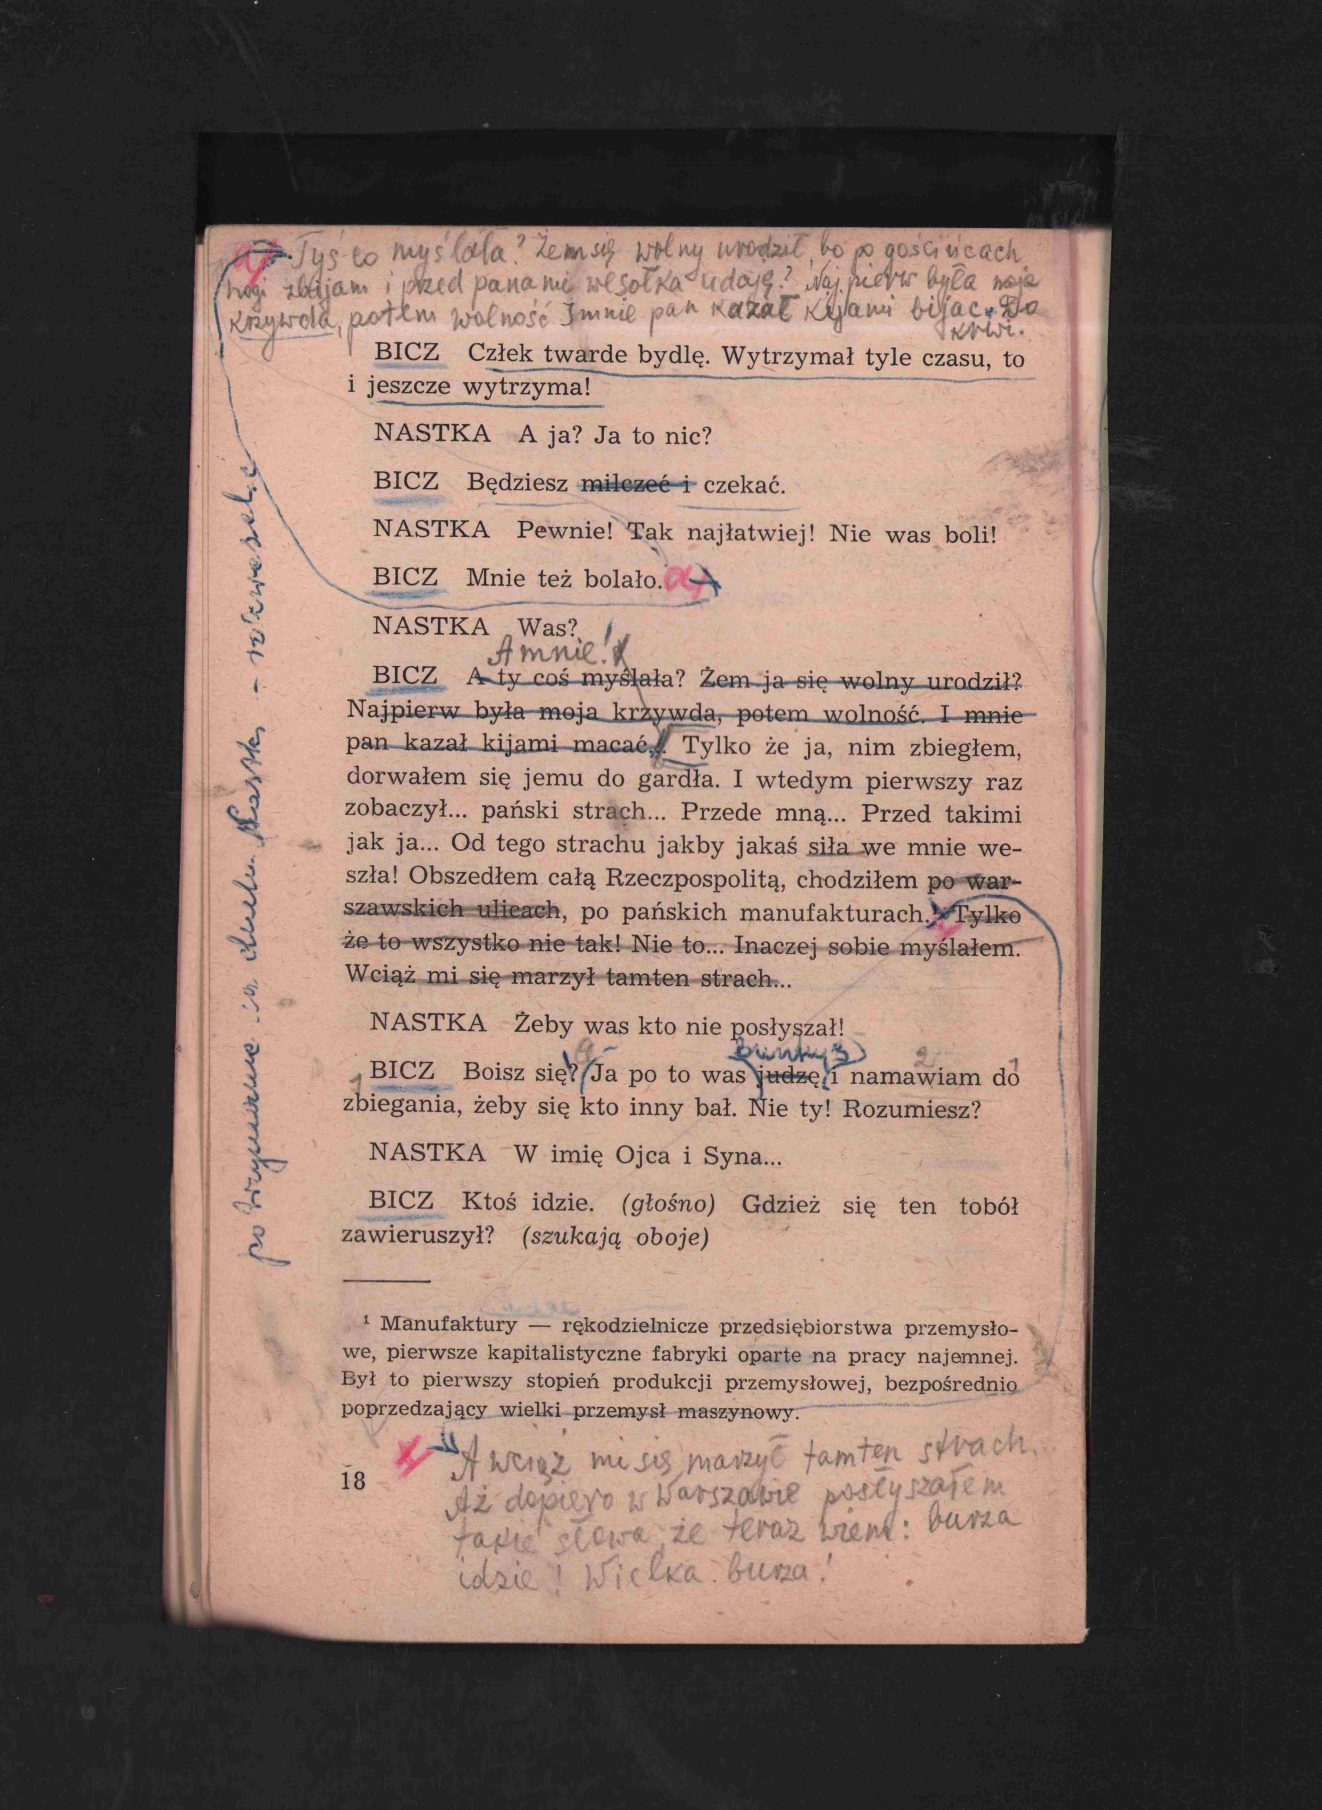 Tyś co myślała? Żem się wolny urodził, bo po gościńcach
nogi zbijam i przed panami wesołka udaję? Najpierw była moja
krzywda, potem wolność I mnie pan kazał kijami bijać. Do
krwi.
BICZ Człek twarde bydlę. Wytrzymał tyle czasu, to
i jeszcze wytrzyma!
NASTKA A ja? Ja to nic?
BICZ Będziesz milczeć i czekać.
NASTKA Pewnie! Tak najłatwiej! Nie was boli!
BICZ Mnie też bolało.
NASTKA Was?
A mnie!
BICZ A ty coś myślała? Żem ja się wolny urodził?
Najpierw była moja krzywda, potem wolność. I mnie
pan kazał kijami macać. Tylko że ja, nim zbiegłem,
dorwałem się jemu do gardła. I wtedym pierwszy raz
zobaczył... pański strach... Przede mną... Przed takimi
jak ja... Od tego strachu jakby jakaś siła we mnie we-
szła! Obszedłem całą Rzeczpospolitą, chodziłem po war-
szawskich ulicach, po pańskich manufakturach. Tylko
że to wszystko nie tak! Nie to... Inaczej sobie myślałem.
Wciąż mi się marzył tamten strach...
NASTKA Żeby was kto nie posłyszał!
BICZ Boisz się? Ja po to was judzę i namawiam do
zbiegania, żeby się kto inny bał. Nie ty! Rozumiesz?
NASTKA W imię Ojca i Syna...
BICZ Ktoś idzie. (głośno) Gdzież się ten tobół
zawieruszył? (szukają oboje)
¹ Manufaktury — rękodzielnicze przedsiębiorstwa przemysło-
we, pierwsze kapitalistyczne fabryki oparte na pracy najemnej.
Był to pierwszy stopień produkcji przemysłowej, bezpośrednio
poprzedzający wielki przemysł maszynowy.
18
A wciąż mi się marzył tamten strach.
Aż dopiero w Warszawie posłyszałem
takie słowa, że teraz wiem: burza
idzie! Wielka burza!